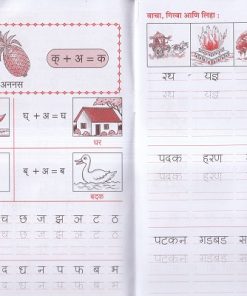 क् + अ = क
अननस
घ् + अ = घ
घर
ब् + अ = ब
बदक
च छ ज झ ञ ट ठ
द ध न प फ ब भ
वाचा, गिरवा आणि लिहा :
रथ यज्ञ
पदक हरण
पटकन गडबड